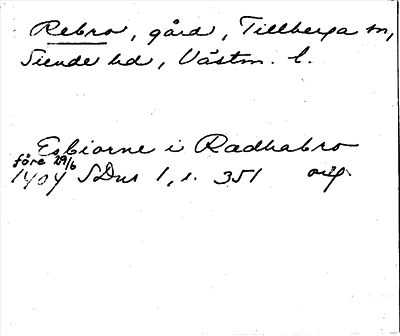 Rebro, gård, Tillberga sn,
Siende hd, Västm. l.
Esbiorne i Radhabro
före 29/6
1404 SDns 1, s. 351 orig.